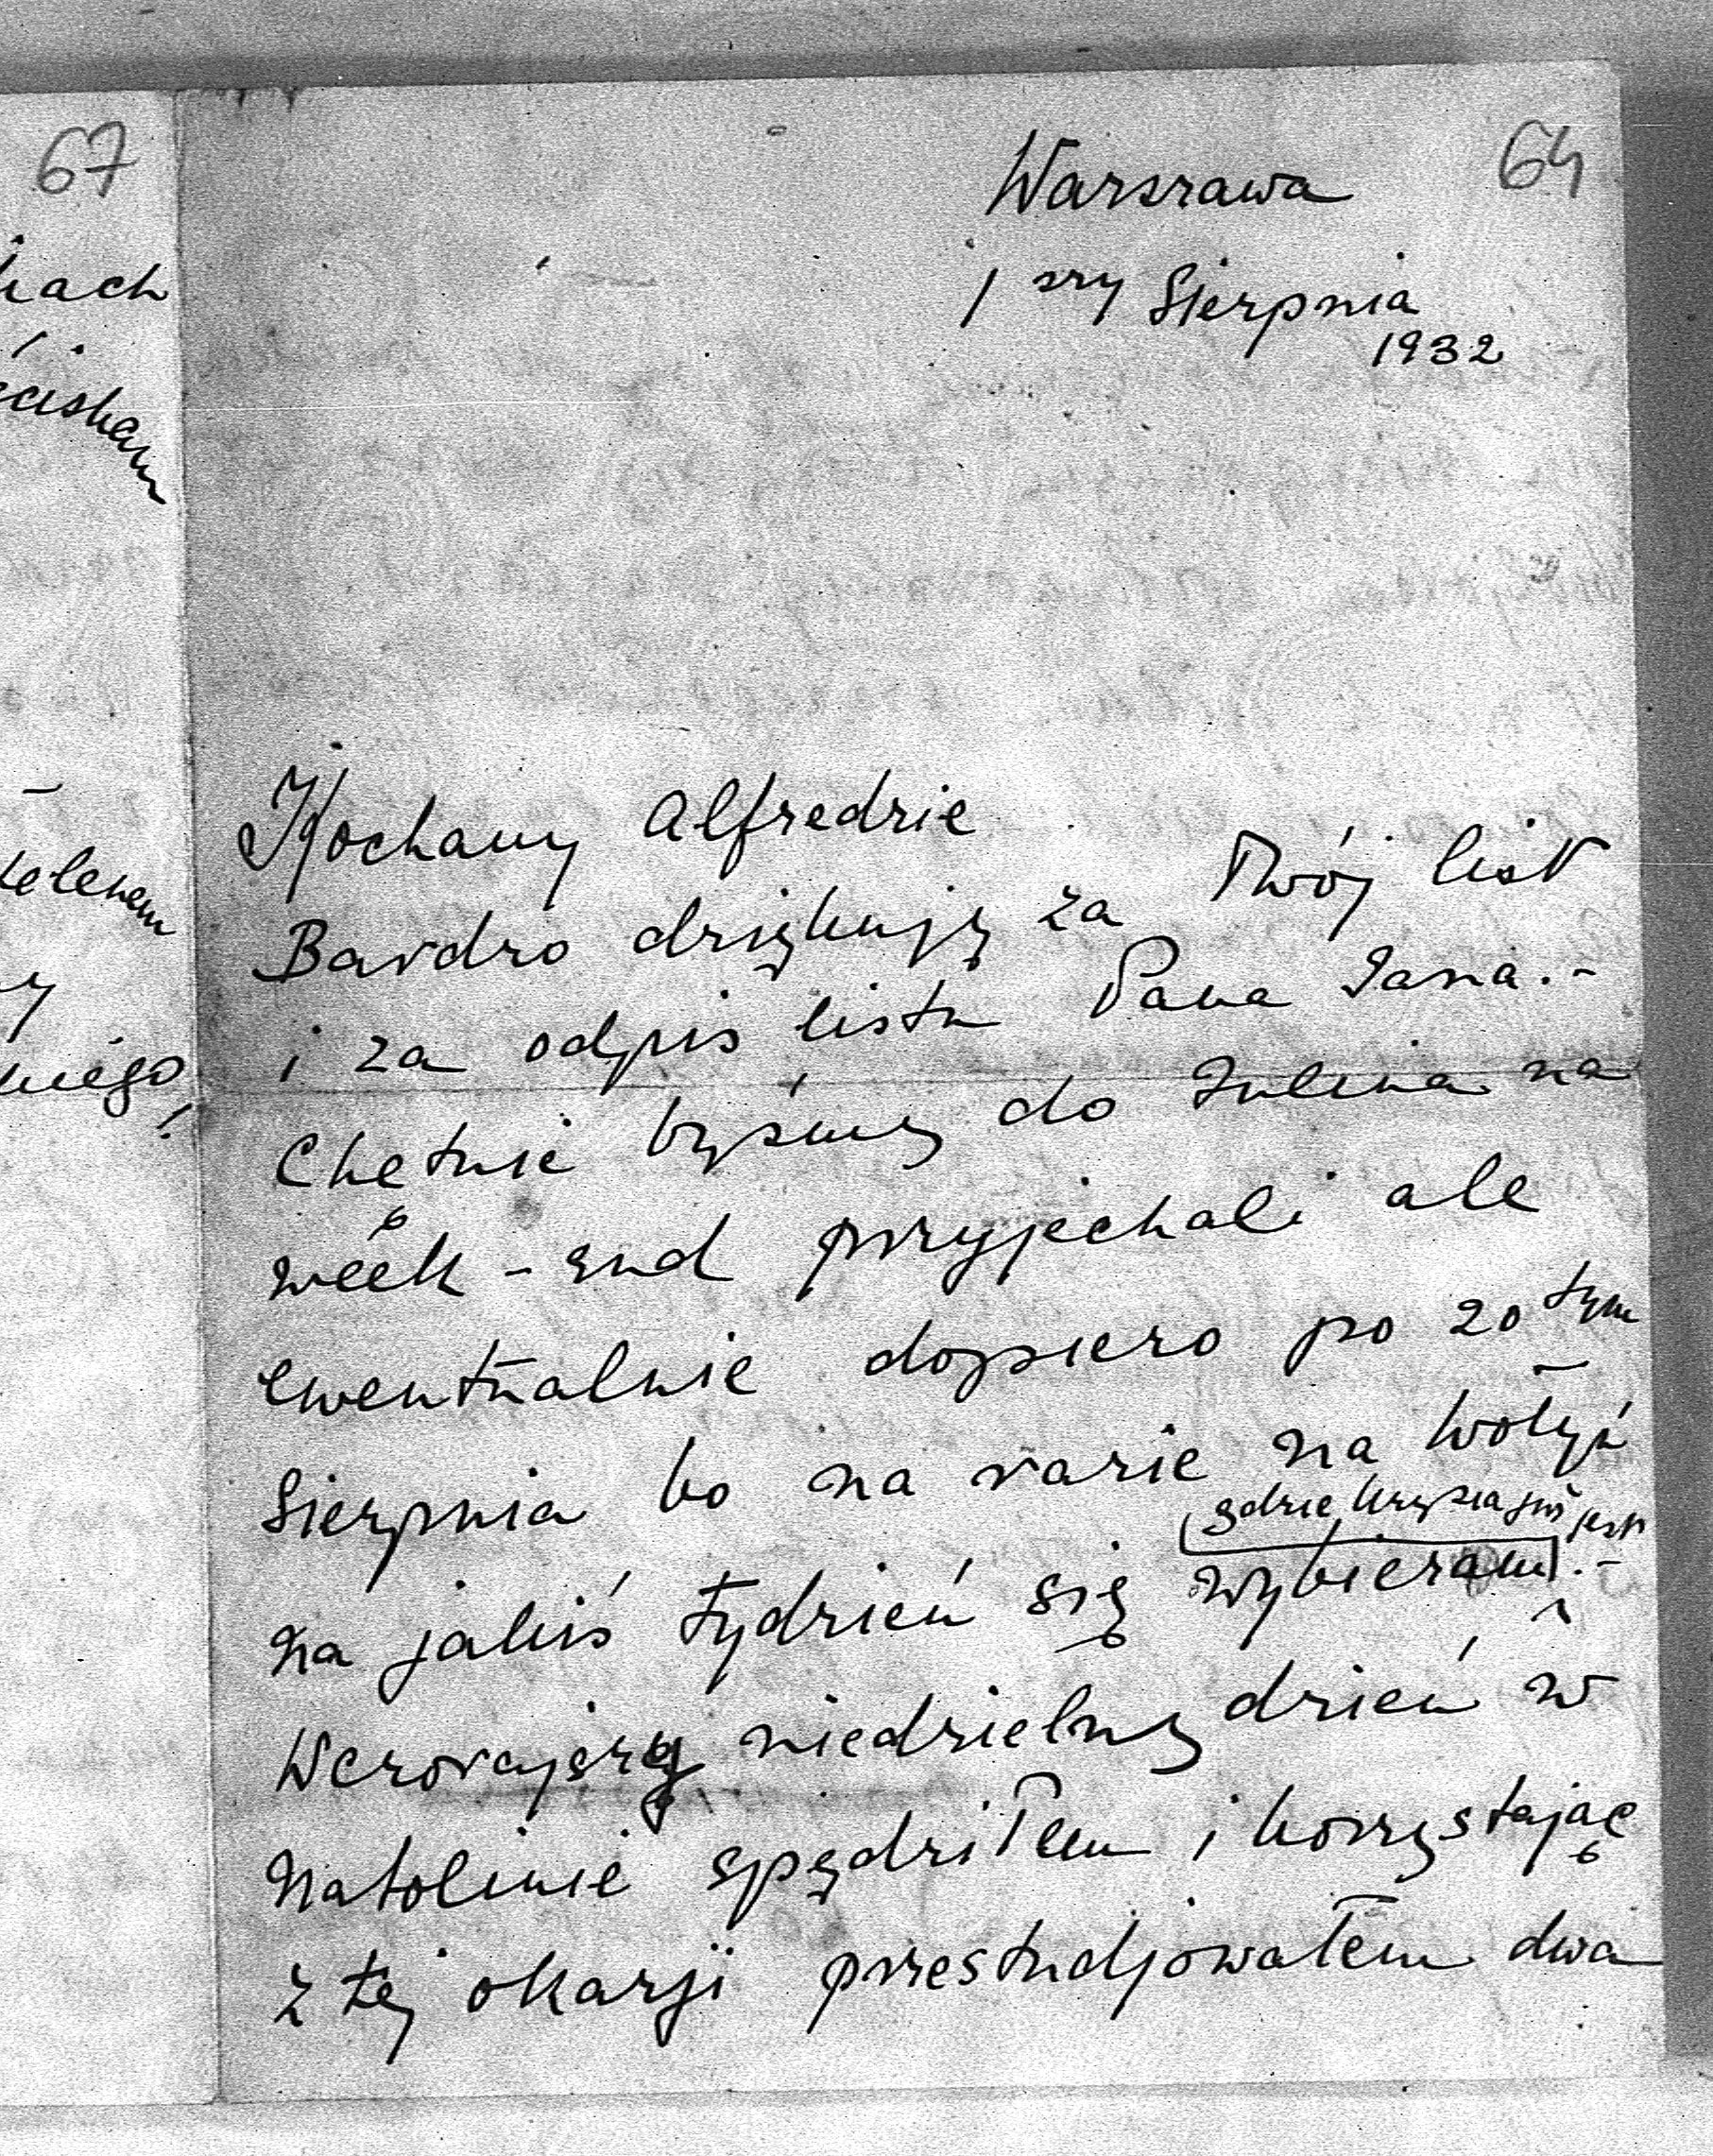 67
kach
ściskam
64
Warszawa
1szy Sierpnia
1932
Kochany Alfredzie
Bardzo dziękuję za Twój list
i za odpis listu Pana Jana.-
Chętnie byśmy do Julina na
week-end przyjechali ale
ewentualnie dopiero po 20tym
Sierpnia bo na razie na Wołyń
(gdzie Krysia już jest)
na jakiś tydzień się wybieram.-
Wczorajszy niedzielny dzień w
Natolinie spędziłem i korzystając
z tej okazji przestudjowałem dwa